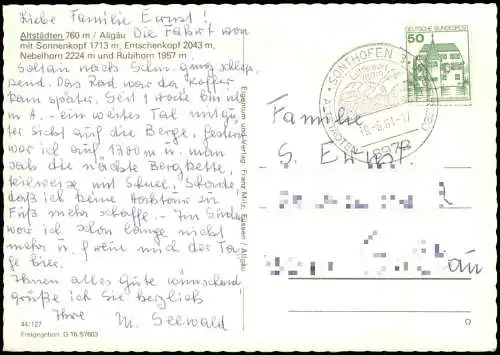 Liebe Familie Ernst!
Altstädten 760 m / Allgäu Die Fahrt von
mit Sonnenkopf 1713 m, Entschenkopf 2043 m,
Nebelhorn 2224 m und Rubihorn 1957 m.
Soltau nach Schw. gang schlep,
pend. Das Rad war der Koffer
kam später. Seit 1 Woche bin ich
in A. - ein weites Tal mit gu,
ter Sicht auf die Berge. Gestern
war ich auf 1300 m u. man
sah die nächste Bergkette,
teilweise mit Schnee. Schade,
daß ich keine Hochtour zu
Fuß mehr schaffe. - Im Süden
war ich schon lange nicht
mehr u. freue mich der Ta,
ge hier.
Ihnen alles Gute wünschend
grüße ich Sie herzlich
Ihre M. Seewald
44/127
Freigegeben: G 16/57603
Eigentum und Verlag: Franz Milz, Füssen / Allgäu
SONTHOFEN 3
ALTSTÄDTEN
15-6.81-17
8972
DEUTSCHE BUNDESPOST
50
Familie
S. Ernst
au